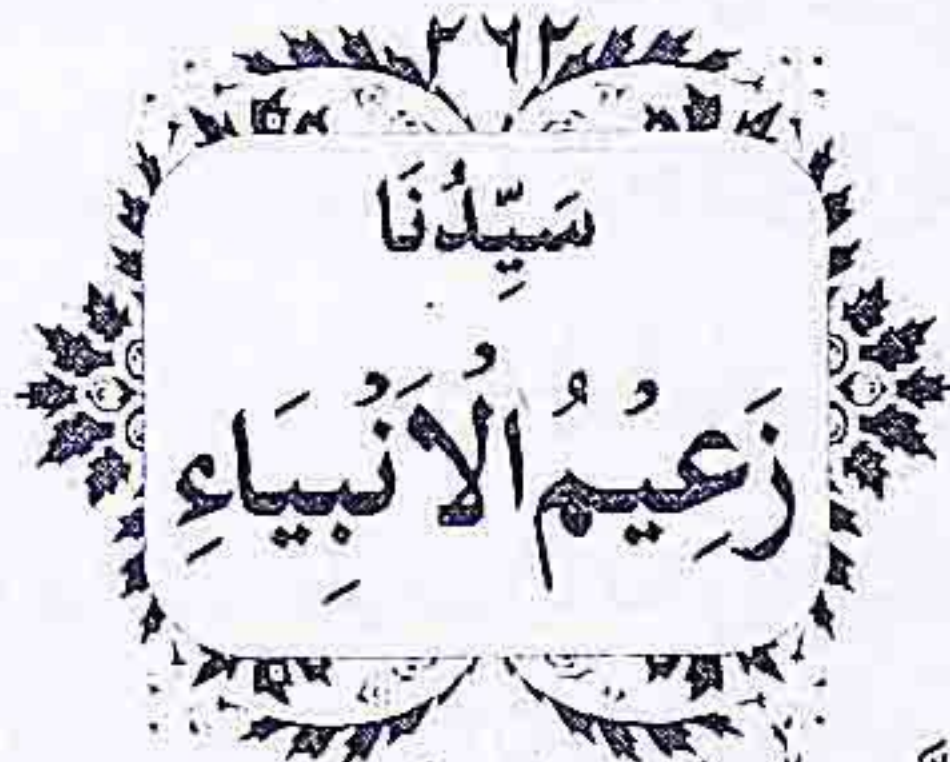 ٣٦٢
سَيِّدُنَا
زَعِيْمُ الْاَنْۢبِيَاءِ